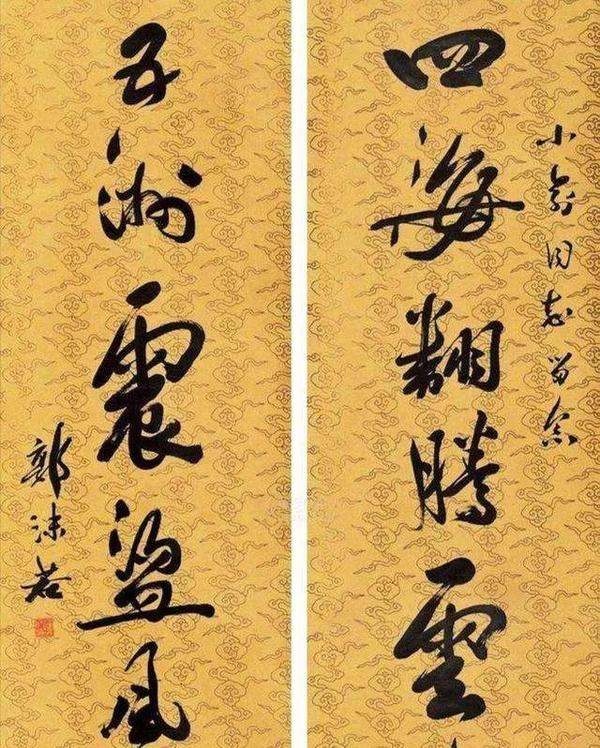 小同志留念
四海翻騰雲
五洲震盪風
郭沫若